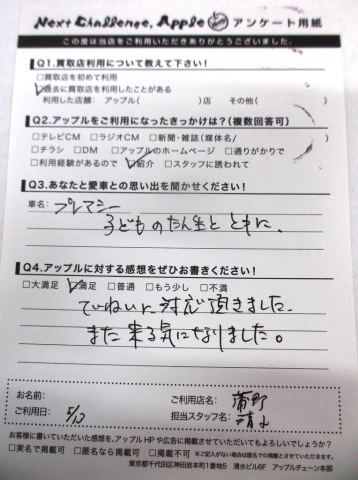 Next Challenge. Apple アンケート用紙
この度は当店をご利用いただきありがとうございました。
Q1.買取店利用について教えて下さい！
□買取店を初めて利用
☑過去に買取店を利用したことがある
利用した店舗： アップル( )店 その他( )
Q2.アップルをご利用になったきっかけは？(複数回答可)
□テレビCM □ラジオCM □新聞・雑誌(媒体名/ )
□チラシ □DM □アップルのホームページ □通りがかりで
□利用経験があるので ☑紹介 □スタッフに誘われて
Q3.あなたと愛車との思い出を聞かせください！
車名： プレマシー
子どものたん生とともに.
Q4.アップルに対する感想をぜひお書きください！
□大満足 ☑満足 □普通 □もう少し □不満
ていねいに対応頂きました.
また来る気になりました。
お名前：
ご利用店名： 蒲野
ご利用日： 5/13
担当スタッフ名：
お客様に書いていただいた感想を、アップルHPや広告に掲載させていただいてもよろしいでしょうか？
□実名で掲載可 □匿名なら掲載可 □掲載不可 ※ご記入がない場合は匿名での掲載とさせていただきます。
東京都千代田区神田岩本町1番地5 清水ビル6F アップルチェーン本部